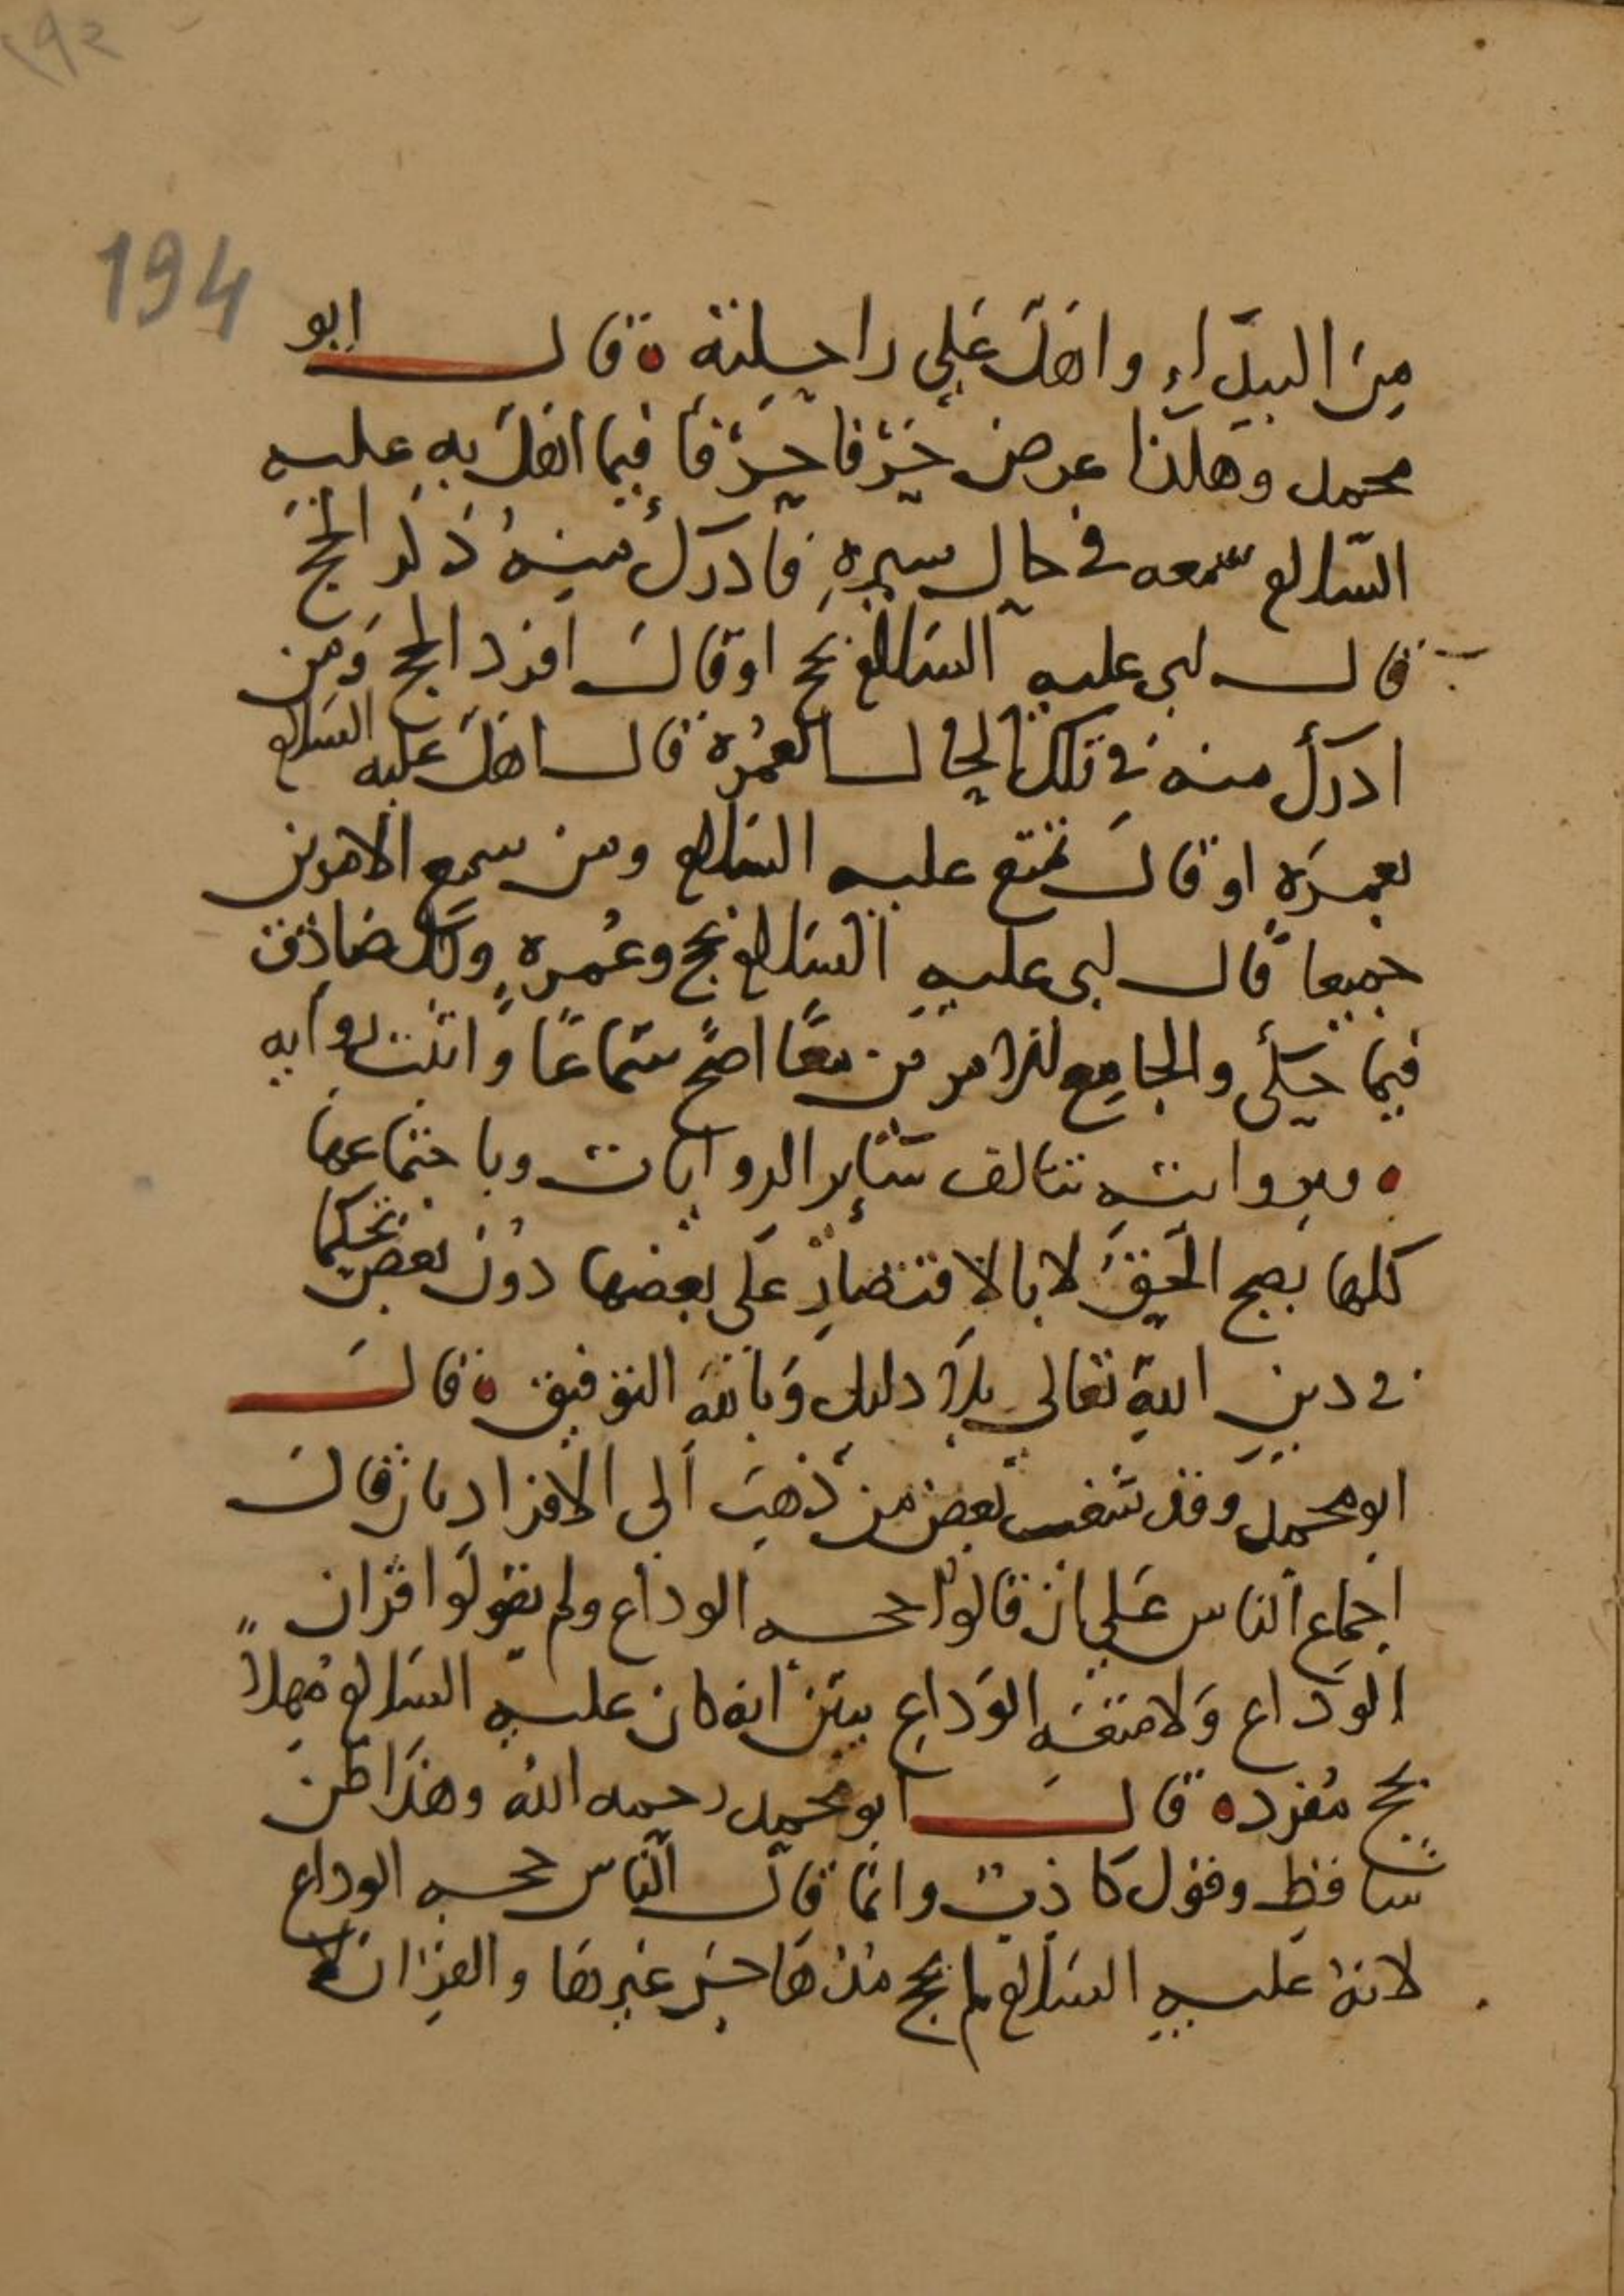 194
من البيداء واهل على راحلته ٥ قال ابو
محمد وهكذا عرض حرفا حرفا فيما اهل به عليه
السلام سمعه في حال سيره فادرك منه ذكر الحج
قال لبى عليه السلام بحج او قال افرد الحج ومن
ادرك منه في تلك الحال العمرة قال اهل عليه السلام
بعمرة او قال تمتع عليه السلام ومن سمع الامرين
جميعا قال لبى عليه السلام بحج وعمرة وكل صادق
فيما حكى والجامع للامرين معا اصح سماعا واثبت رواية
٥ وبروايته تتالف سائر الروايات وباجتماعها
كلها يصح الحق لا بالاقتصار على بعضها دون بعض تحكما
في دين الله تعالى بلا دليل وبالله التوفيق ٥ قال
ابو محمد وقد شغب بعض من ذهب الى الافراد بان قال
اجماع الناس على ان قالوا حجة الوداع ولم يقولوا قران
الوداع ولا متعة الوداع يبين انه كان عليه السلام مهلا
بحج مفرد ٥ قال ابو محمد رحمه الله وهذا ظن
ساقط وقول كاذب وانما قال الناس حجة الوداع
لانه عليه السلام لم يحج مذ هاجر غيرها والقران لا